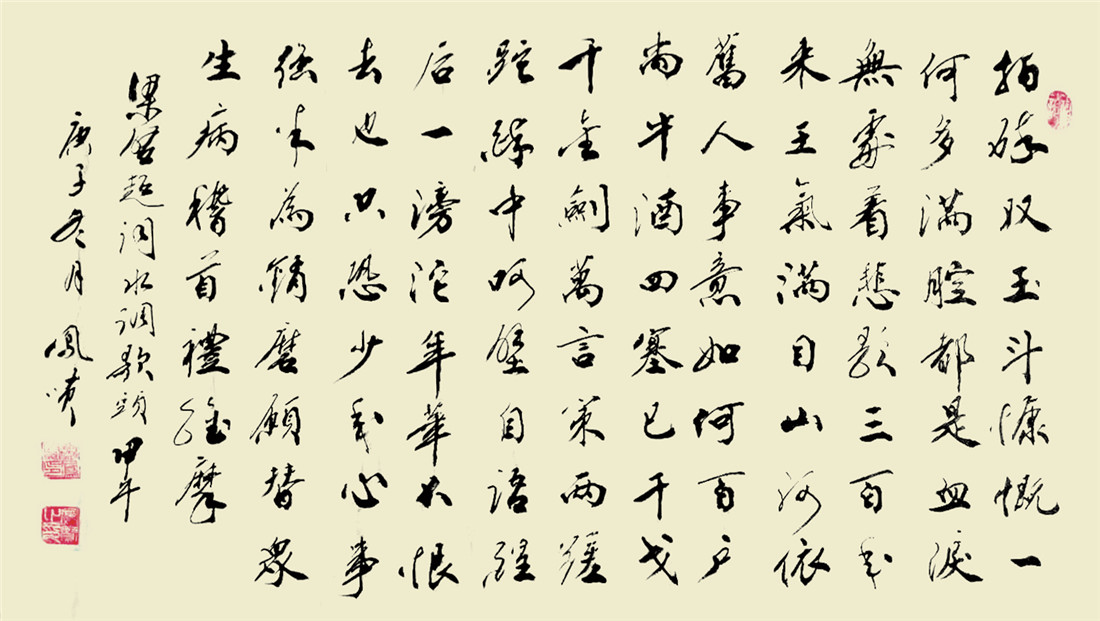 拍碎双玉斗慷慨一
何多满腔都是血淚
無處着悲歌三百年
来王氣满目山河依
舊人事意如何百户
尚牛酒四塞已干戈
千金劍萬言策两蹉
跎醉中呵壁自語醒
后一滂沱年華不恨
去也只恐少年心事
强半為銷磨願替衆
生病稽首禮維摩
梁啓超词水调歌頭甲午
庚子冬月鳳